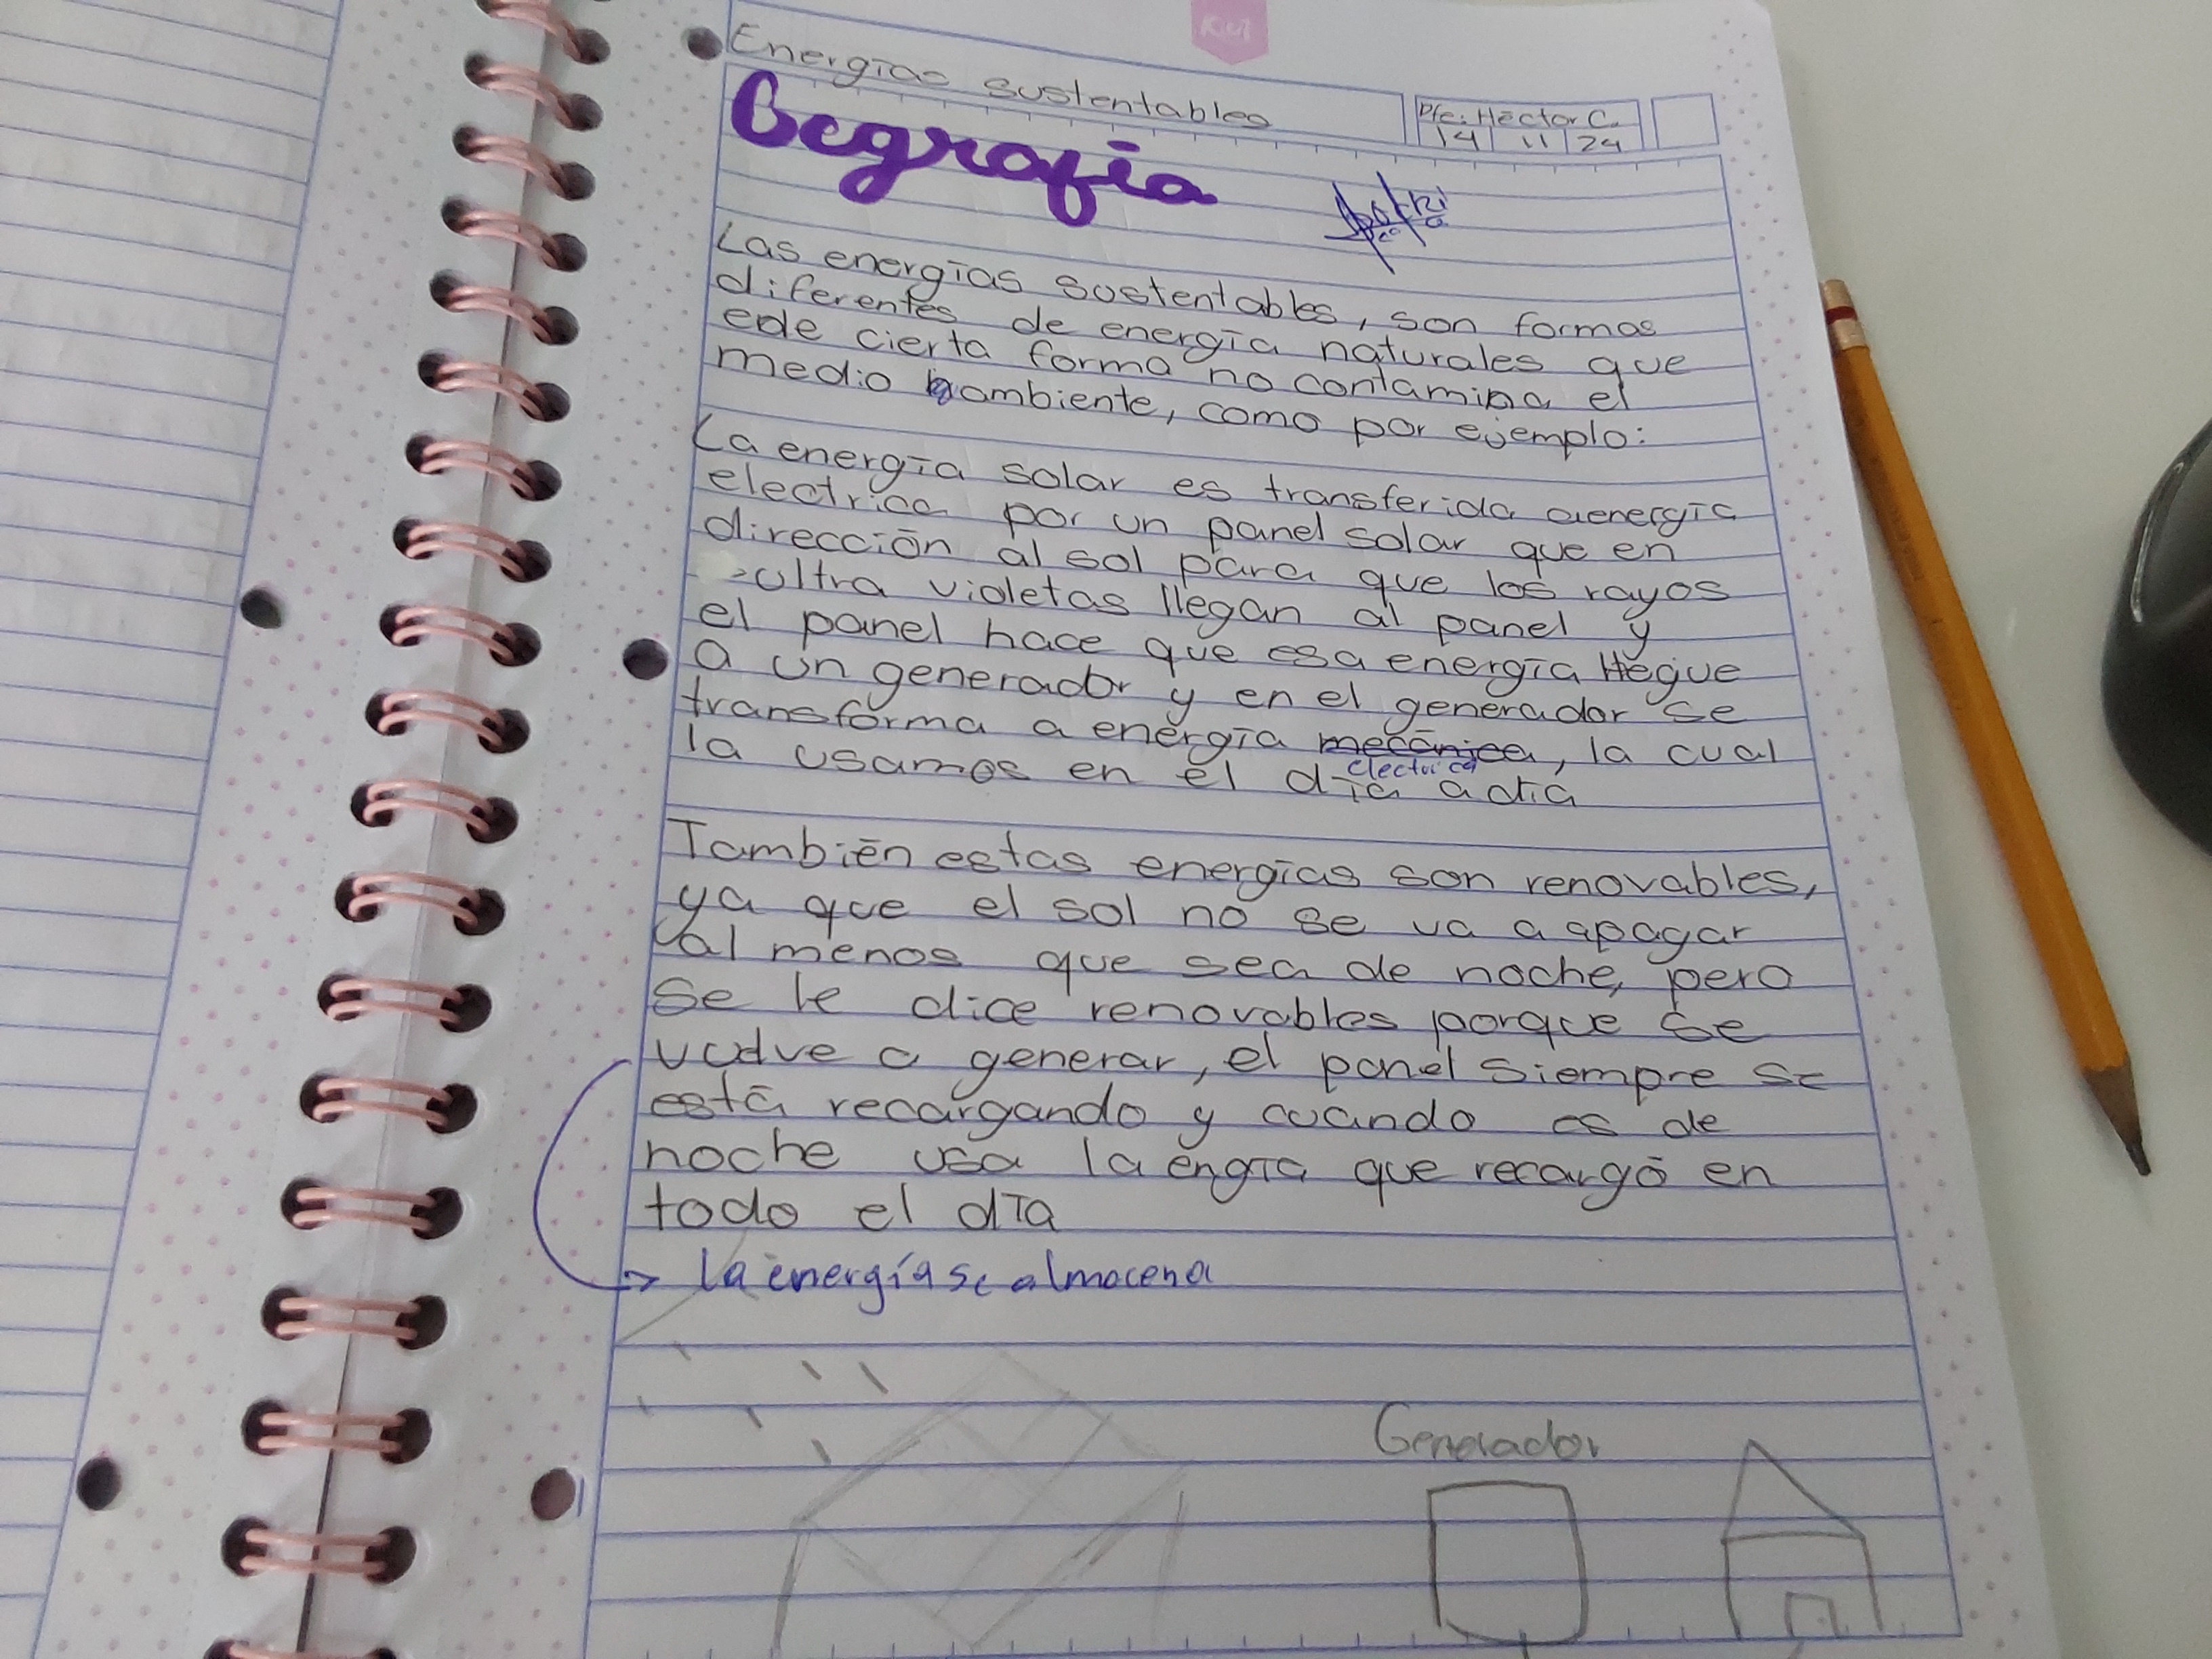 Energías sustentables
Pfe: Héctor C.
14 11 24
Gegrafia
Las energías sustentables, son formas
diferentes de energía naturales que
ede cierta forma no contamina el
medio ambiente, como por ejemplo:
La energía solar es transferida a energía
electrica por un panel solar que en
dirección al sol para que los rayos
ultra violetas llegan al panel y
el panel hace que esa energía llegue
a un generador y en el generador se
transforma a energía mecánica, la cual
electrica
la usamos en el día a día
También estas energías son renovables,
ya que el sol no se va a apagar
al menos que sea de noche, pero
se le dice renovables porque se
vuelve a generar, el panel siempre se
está recargando y cuando es de
noche usa la engía que recargó en
todo el día
→ la energía se almacena
Generador